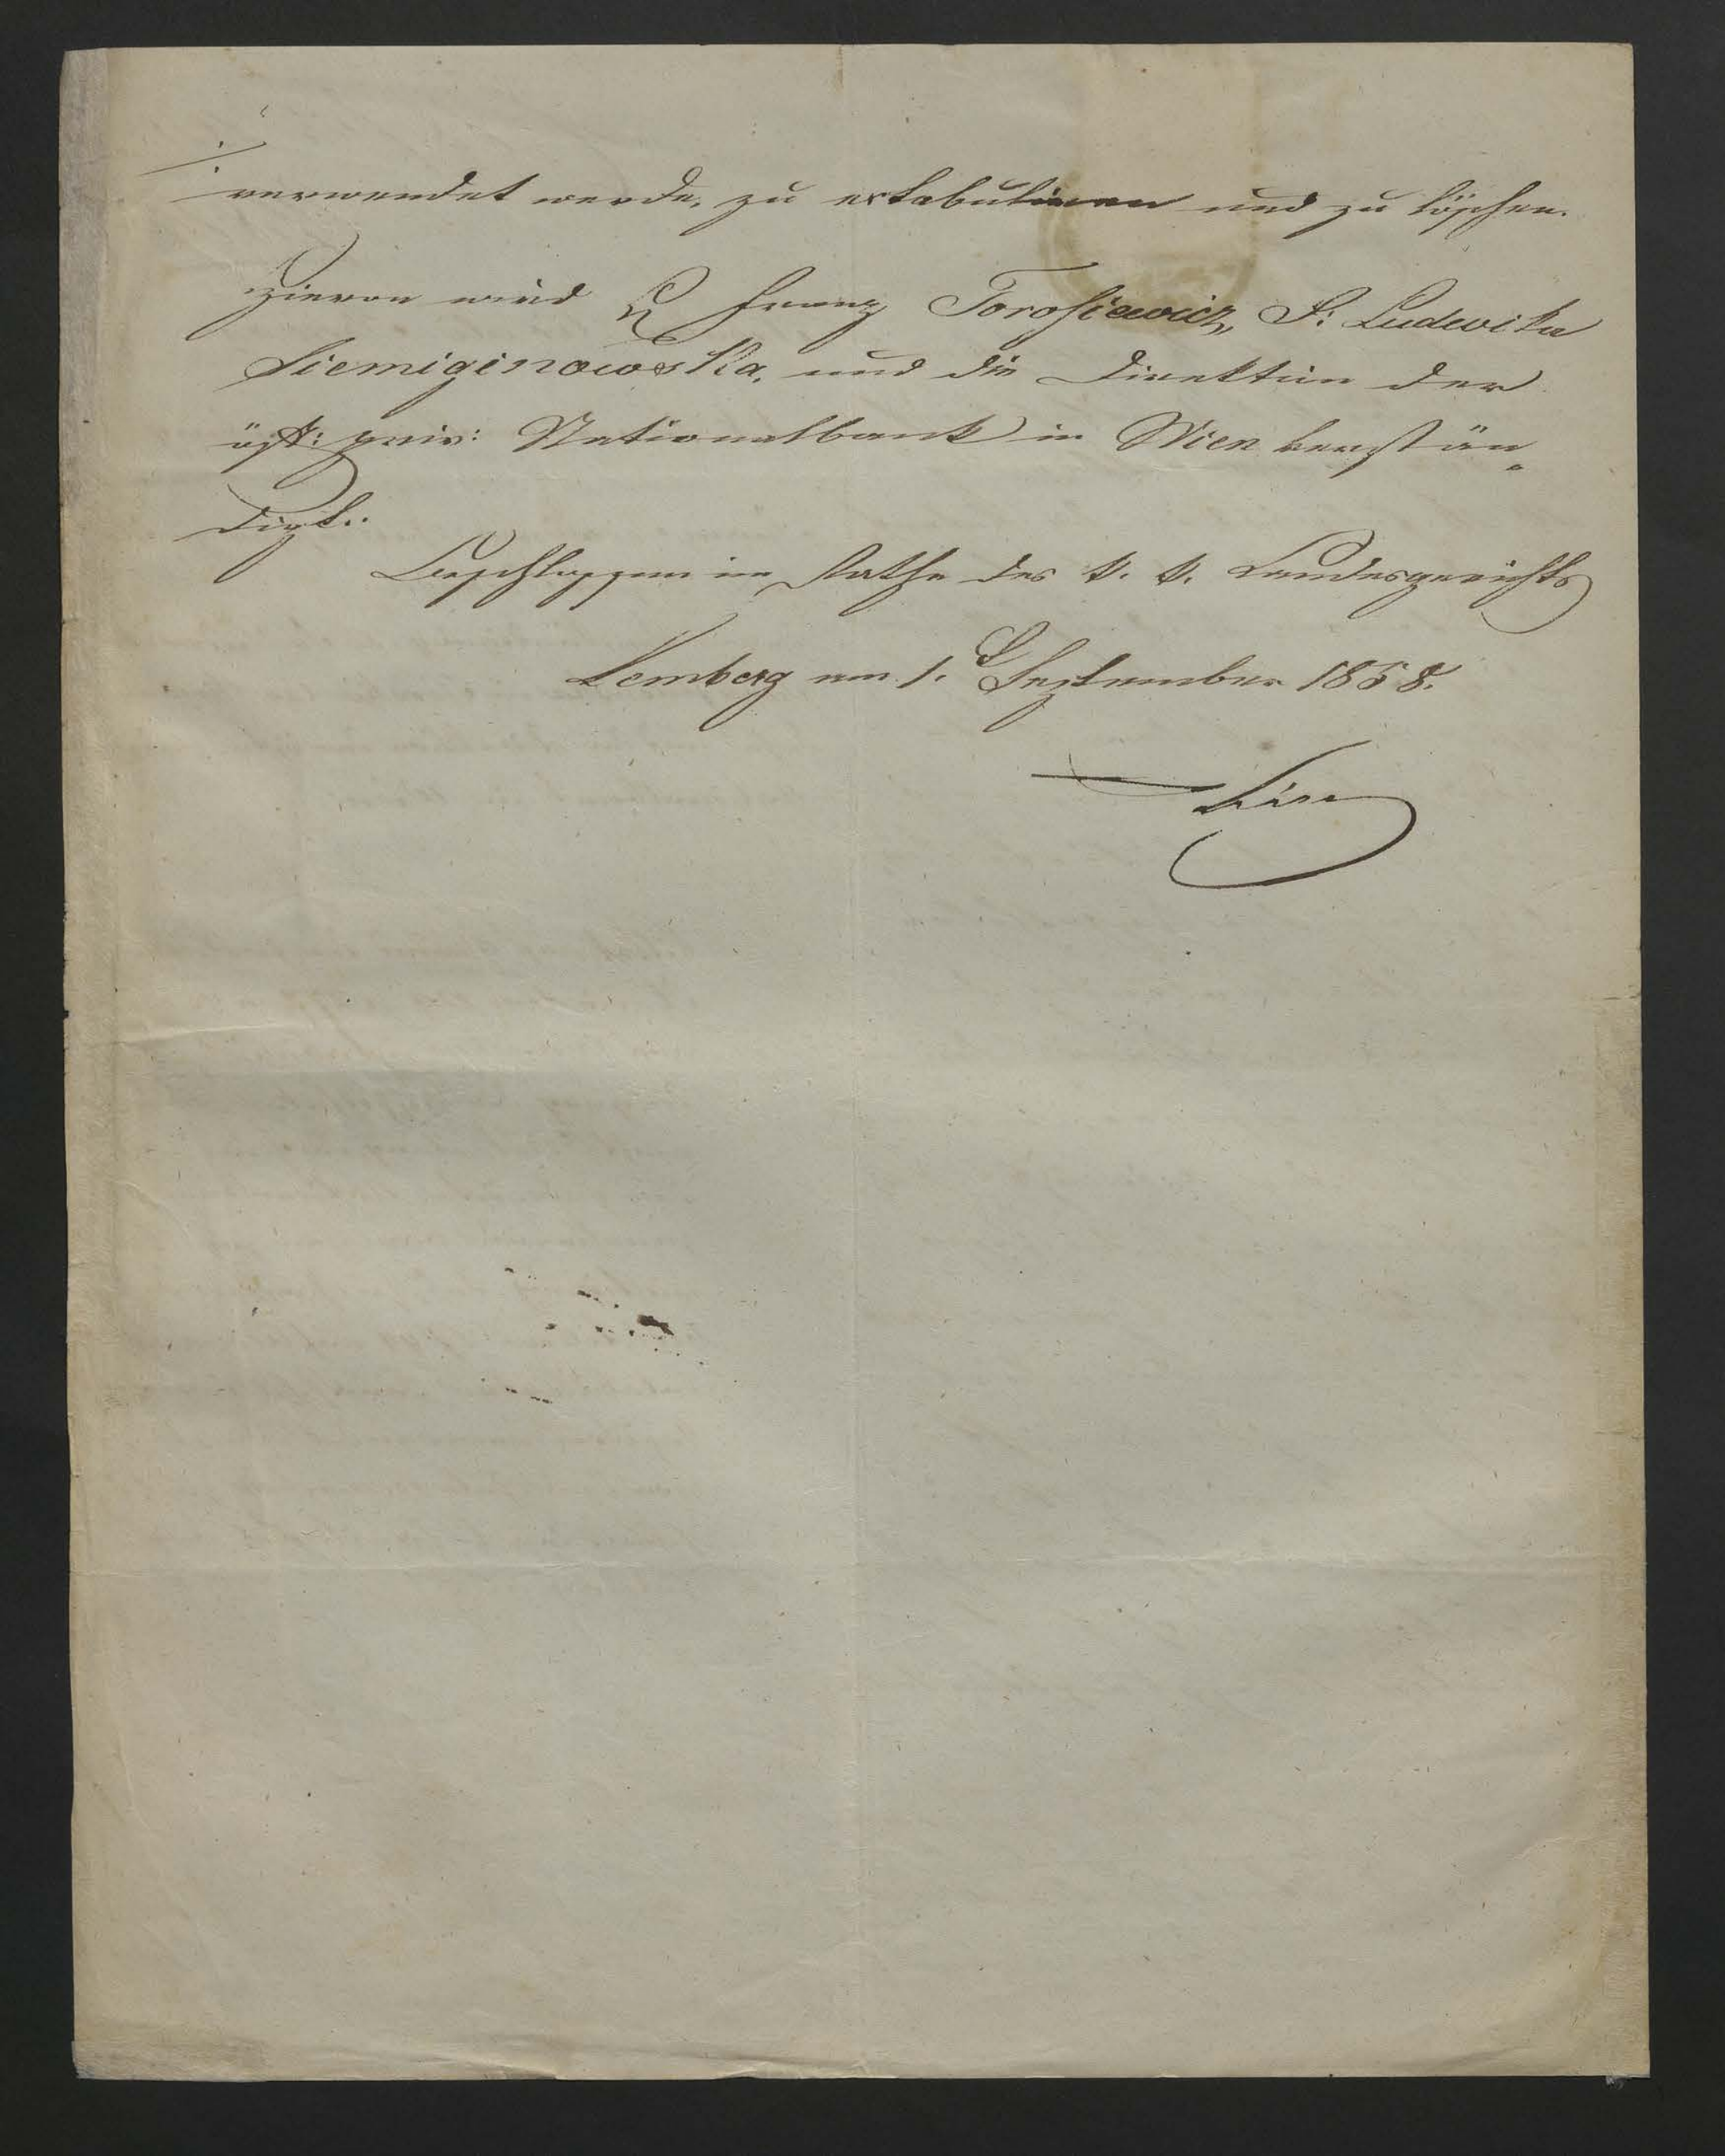 ./.
verwendet werde, zu extabuliren und zu löschen.
Hievon wird H Franz Torosiewicz, F: Ludwika
Siemiginowska, und die Direktion der
öst: priv: Nationalbank in Wien verstän„
digt.
Beschlossen im Rathe des k. k. Landesgerichts
Lemberg am 1. September 1858.